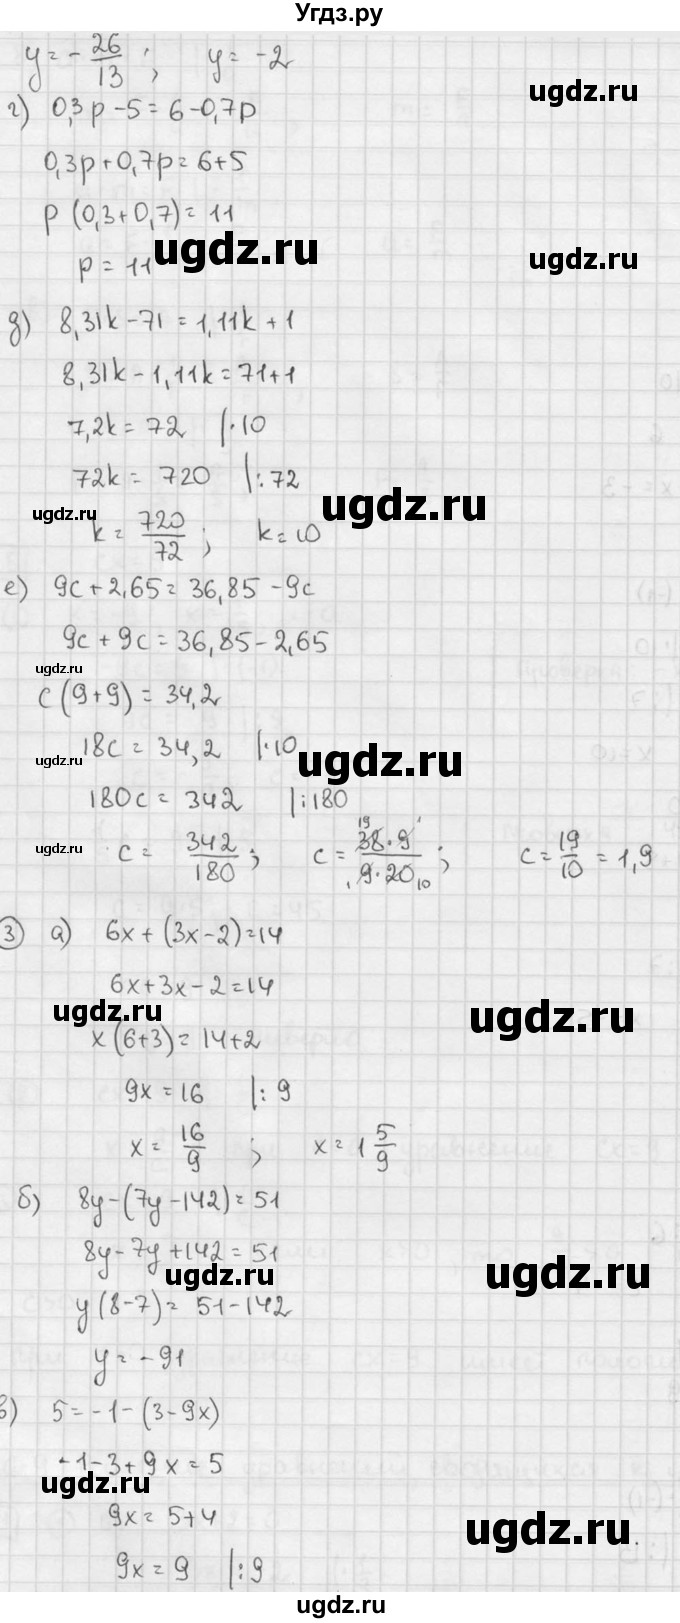 Угдз.ру
y = -26/13 ; y = -2
ugdz.ru
г) 0,3p - 5 = 6 - 0,7p
0,3p + 0,7p = 6 + 5
p (0,3 + 0,7) = 11
ugdz.ru
ugdz.ru
p = 11
д) 8,31k - 71 = 1,11k + 1
8,31k - 1,11k = 71 + 1
7,2k = 72 |·10
72k = 720 |:72
ugdz.ru
ugdz.ru
k = 720/72 ; k = 10
е) 9c + 2,65 = 36,85 - 9c
9c + 9c = 36,85 - 2,65
ugdz.ru
c (9 + 9) = 34,2
18c = 34,2 |·10
ugdz.ru
ugdz.ru
180c = 342 |:180
ugdz.ru
c = 342/180 ; c = 38·9/9·20 ; c = 19/10 = 1,9
3 а) 6x + (3x - 2) = 14
6x + 3x - 2 = 14
ugdz.ru
ugdz.ru
x (6 + 3) = 14 + 2
9x = 16 |: 9
x = 16/9 ; x = 1 5/9
б) 8y - (7y - 142) = 51
8y - 7y + 142 = 51
ugdz.ru
ugdz.ru
y (8 - 7) = 51 - 142
y = -91
в) 5 = -1 - (3 - 9x)
-1 - 3 + 9x = 5
ugdz.ru
9x = 5 + 4
ugdz.ru
9x = 9 |:9
ugdz.ru